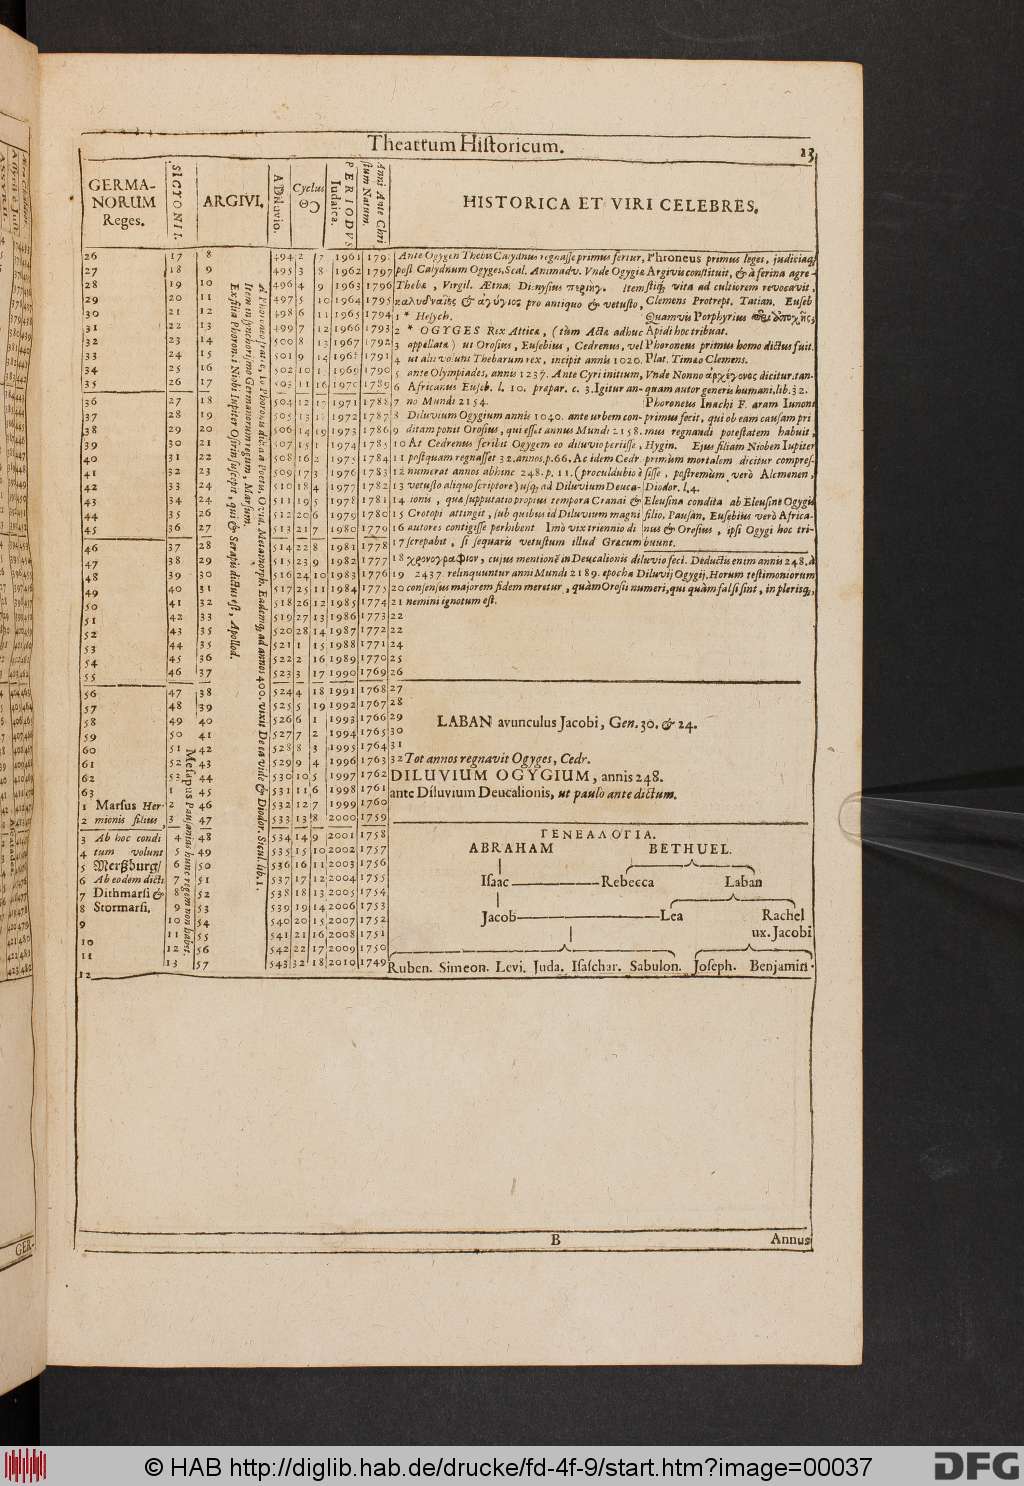 Theatrum Historicum.
23
GERMA-
NORUM
Reges.
SICYONII.
ARGIVI.
A Diluvio.
Cyclus
PERIODUS
Iudaica.
Anni Ante Chri
stum Natum.
HISTORICA ET VIRI CELEBRES.
26 17 8 494 2 7 1961 179
27 18 9 495 3 8 1962 1797
28 19 10 496 4 9 1963 1796
29 20 11 497 5 10 1964 1795
30 21 12 498 6 11 1965 1794 1
31 22 13 499 7 12 1966 1793 2
32 23 14 500 8 13 1967 1792 3
33 24 15 501 9 14 1968 1791 4
34 25 16 502 10 1 1969 1790 5
35 26 17 503 11 16 1970 1789 6
36 27 18 504 12 17 1971 1788 7
37 28 19 505 13 18 1972 1787 8
38 29 20 506 14 19 1973 1786 9
39 30 21 507 15 1 1974 1785 10
40 31 22 508 16 2 1975 1784 11
41 32 23 509 17 3 1976 1783 12
42 33 24 510 18 4 1977 1782 13
43 34 24 511 19 5 1978 1781 14
44 35 26 512 20 6 1979 1780 15
45 36 27 513 21 7 1980 1779 16
46 37 28 514 22 8 1981 1778 17
47 38 29 515 23 9 1982 1777 18
48 39 30 516 24 10 1983 1776 19
49 40 31 517 25 11 1984 1775 20
50 41 32 518 26 12 1985 1774 21
51 42 33 519 27 13 1986 1773 22
52 43 35 520 28 14 1987 1772 22
53 44 35 521 1 15 1988 1771 24
54 45 36 522 2 16 1989 1770 25
55 46 37 523 3 17 1990 1769 26
56 47 38 524 4 18 1991 1768 27
57 48 39 525 5 19 1992 1767 28
58 49 40 526 6 1 1993 1766 29
59 50 41 527 7 2 1994 1765 30
60 51 42 528 8 3 1995 1764 31
61 52 43 529 9 4 1996 1763 32
62 53 44 530 10 5 1997 1762
63 1 45 531 11 6 1998 1761
1 Marsus Her- 2 46 532 12 7 1999 1760
2 mionis filius, 3 47 533 13 8 2000 1759
3 Ab hoc condi 4 48 534 14 9 2001 1758
4 tum volunt 5 49 535 15 10 2002 1757
5 Merßburg/ 6 50 536 16 11 2003 1756
6 Ab eodem dicti 7 51 537 17 12 2004 1755
7 Dithmarsi & 8 52 538 18 13 2005 1754
8 Stormarsi. 9 53 539 19 14 2006 1753
9 10 54 540 20 15 2007 1752
10 11 55 541 21 16 2008 1751
11 12 56 542 22 17 2009 1750
12 13 57 543 32 18 2010 1749
A Phoronei fratre, Io Phoronis dicta a Poetis, Ovid. Metamorph. Eademq; ad annos 400. vixit De ea vide & Diodor. Sicul. lib. 1.
Item in synchorismo Germanorum regum, Marsum.
Ex filia Phoronei Niobi Iupiter Osirin suscepit, qui & Serapis dictus est, Apollod.
Mesapus Pausanias hunc regem non habet.
Ante Ogygen Thebis Calydnus regnasse primus fertur,
post Calydnum Ogyges, Scal. Animadv. Unde Ogygiæ
Thebæ, Virgil. Ætna. Dionysius περιηγ. Item
καλυδναῖης & ὠγύγιος pro antiquo & vetusto,
* Hesych.
* OGYGES Rex Atticæ, (tùm Acta adhuc
appellata) ut Orosius, Eusebius, Cedrenus, vel
ut alii volunt Thebarum rex, incipit annis 1020.
ante Olympiades, annis 1237. Ante Cyri initium,
Africanus Euseb. l. 10. prepar. c. 3. Igitur an-
no Mundi 2154.
Diluvium Ogygium annis 1040. ante urbem con-
ditam ponit Orosius, qui esset annus Mundi 2158.
At Cedrenus scribit Ogygem eo diluvio periisse,
postquam regnasset 32. annos, p. 66. Ac idem Cedr.
numerat annos abhinc 248. p. 11. (proculdubio è
vetusto aliquo scriptore) usq; ad Diluvium Deuca-
lionis, quæ supputatio propius tempora Cranai &
Crotopi attingit, sub quibus id Diluvium magni
autores contigisse perhibent Imò vix triennio di
screpabit, si sequaris vetustum illud Græcum
χρονογραφιον, cujus mentionē in Deucalionis diluvio feci. Deductis enim annis 248. à
2437 relinquuntur anni Mundi 2189. epocha Diluvij Ogygij. Horum testimoniorum
consensus majorem fidem meretur, quàm Orosii numeri, qui quàm falsi sint, in plerisq;,
nemini ignotum est.
Phroneus primus leges, judiciaq;
Argivis constituit, & à ferina agre-
stiq; vita ad cultiorem revocavit,
Clemens Protrept. Tatian. Euseb
Quamvis Porphyrius
Apidi hoc tribuat.
Phoroneus primus homo dictus fuit.
Plat. Timæo Clemens.
Unde Nonno ἀρχέγονος dicitur. tan-
quam autor generis humani, lib. 32.
Phoroneus Inachi F. aram Iunoni
primus fecit, qui ob eam causam pri
mus regnandi potestatem habuit,
Hygin. Ejus filiam Nioben Iupiter
primùm mortalem dicitur compres-
sisse, postremùm verò Alcmenen,
Diodor. l. 4.
Eleusina condita ab Eleusine Ogygis
filio, Pausan. Eusebius verò Africa-
nus & Orosius, ipsi Ogygi hoc tri-
buunt.
LABAN avunculus Jacobi, Gen. 30. & 24.
Tot annos regnavit Ogyges, Cedr.
DILUVIUM OGYGIUM, annis 248.
ante Diluvium Deucalionis, ut paulò ante dictum.
ΓΕΝΕΑΛΟΓΙΑ.
ABRAHAM BETHUEL.
Isaac Rebecca Laban
Jacob Lea Rachel
ux. Jacobi
Ruben. Simeon. Levi. Juda. Isaschar. Sabulon. Joseph. Benjamin.
B
Annus
GER-
© HAB http://diglib.hab.de/drucke/fd-4f-9/start.htm?image=00037
DFG